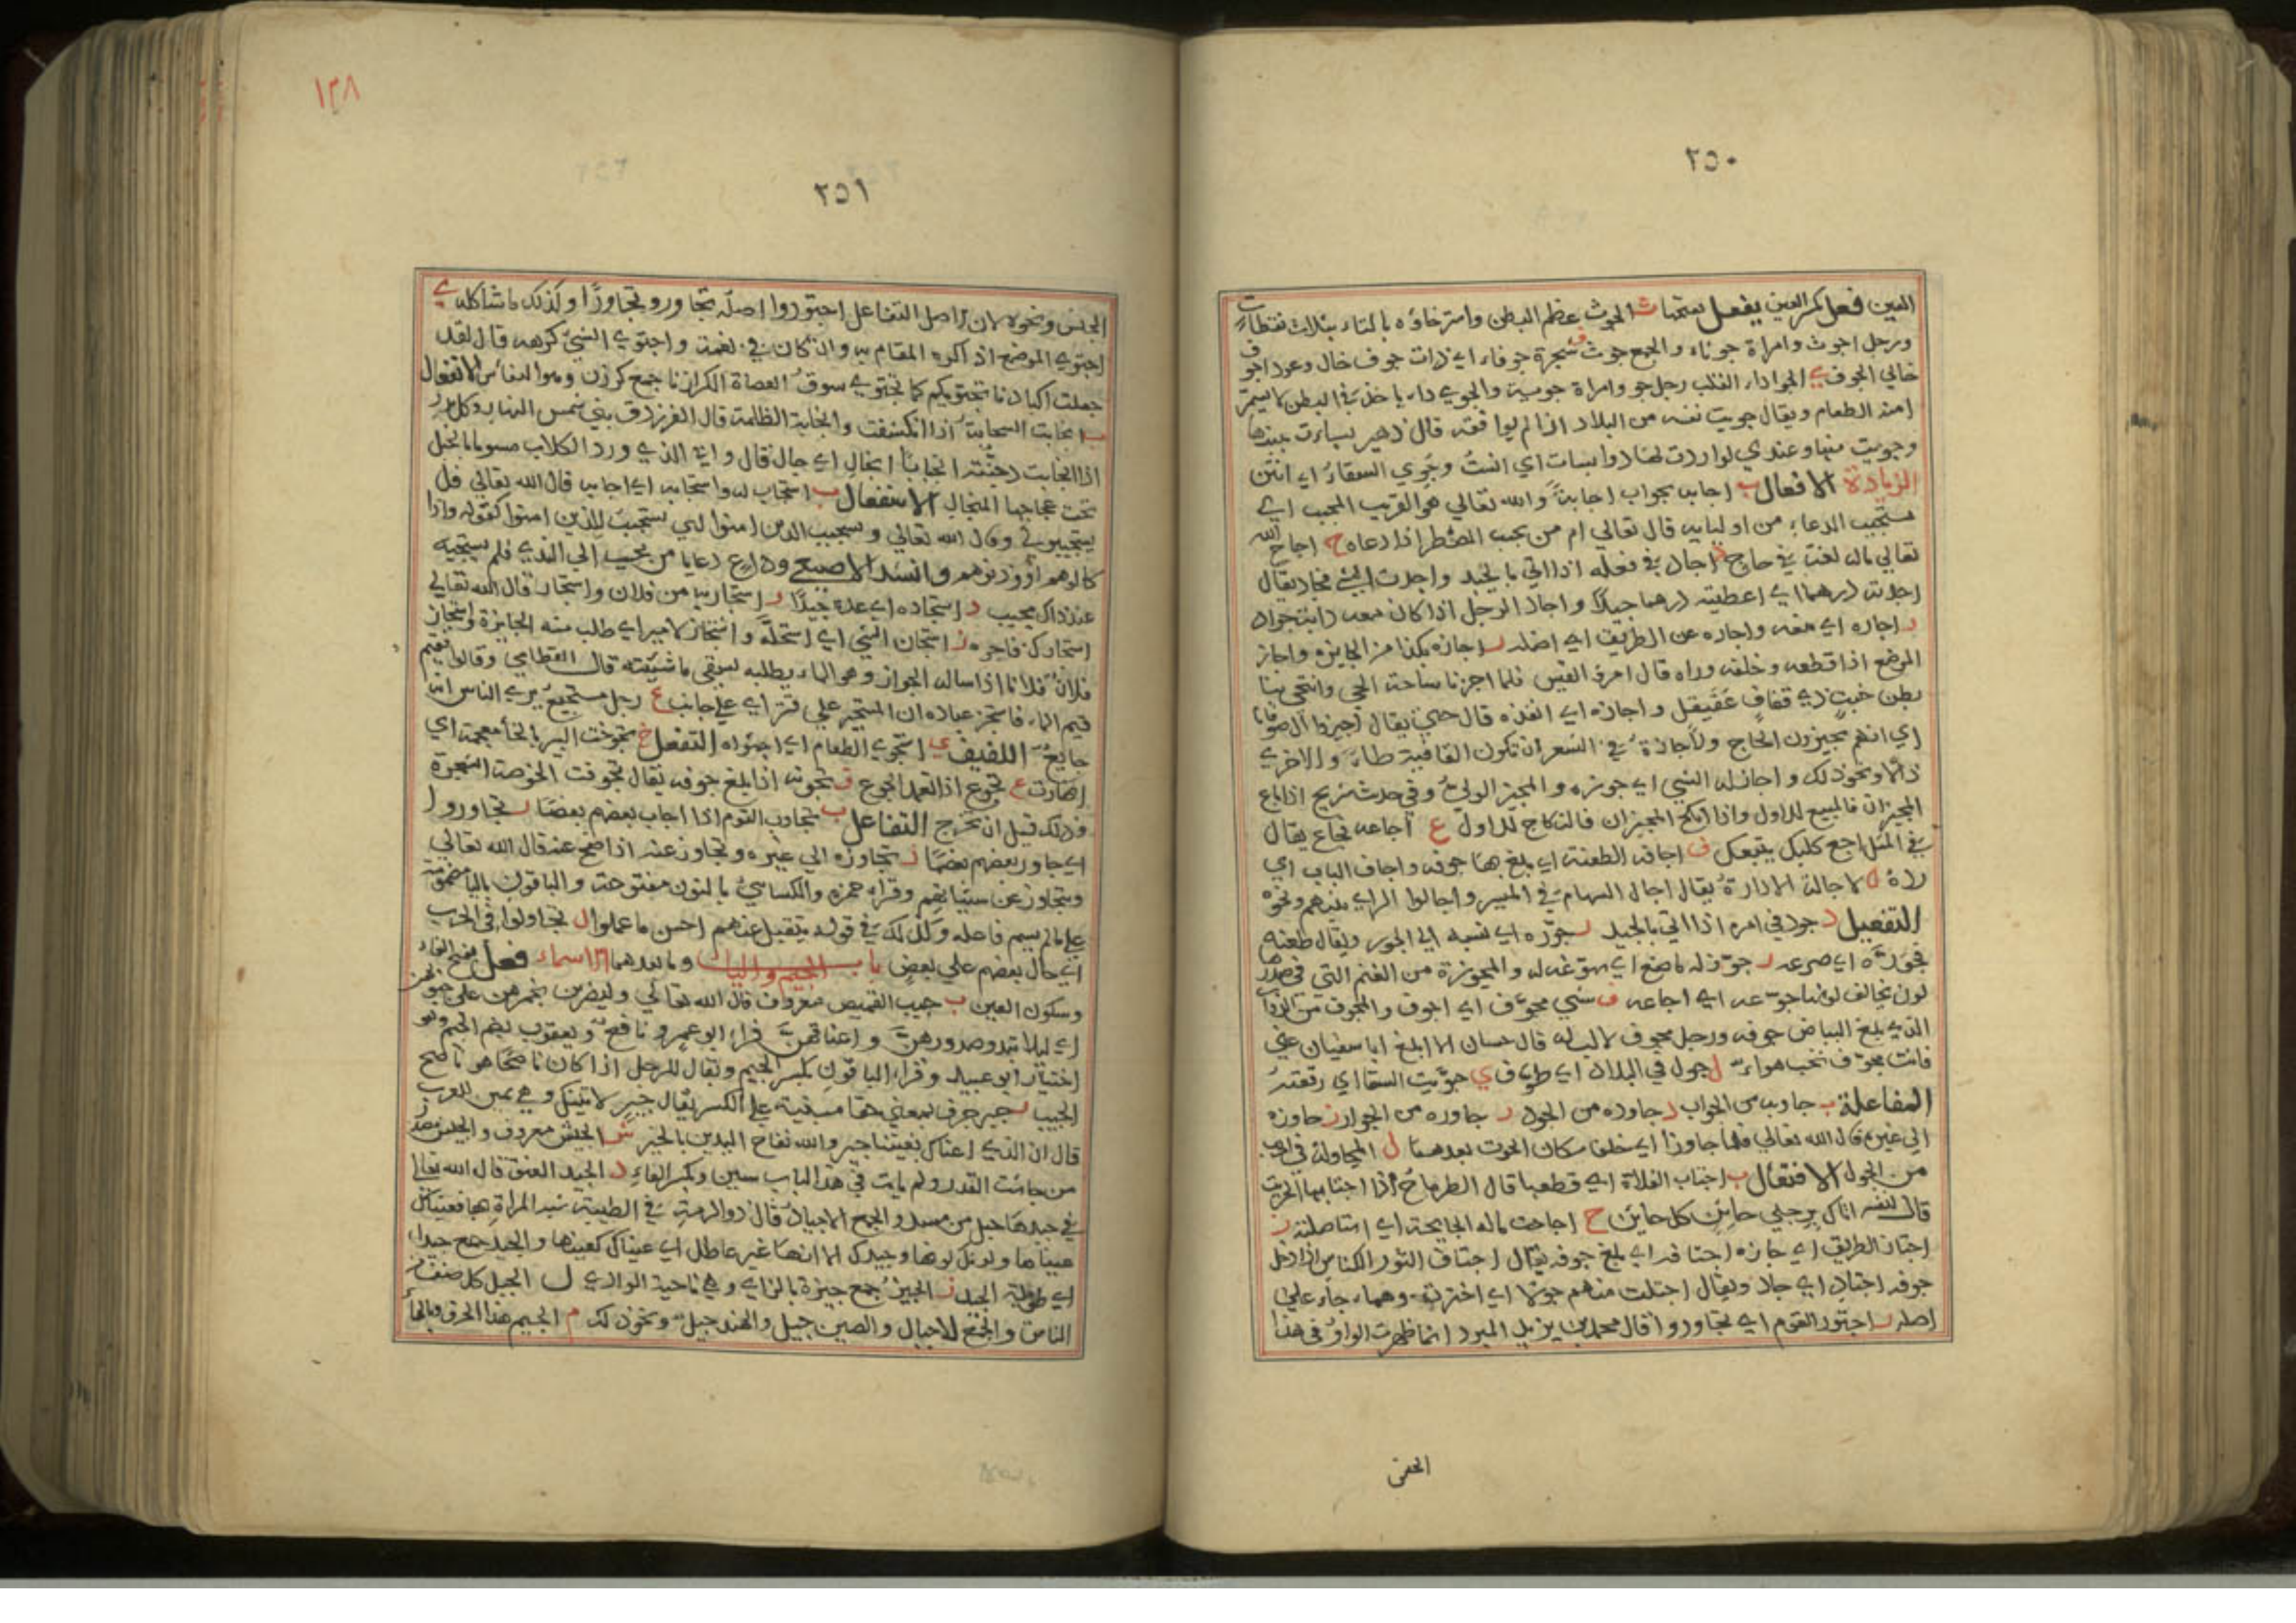 ٢٥٠
العين فعل بكسر العين يفعل بفتحها ث الجوث عظم البطن واسترخاؤه بالثاء بثلاث نقطات
ورجل اجوث وامراة جوثاء والجمع جوث ف شجرة جوفاء اي ذات جوف خال وعود اجوف
خالي الجوف ي الجوا داء القلب رجل جو وامراة جوية والجوي داء ياخذ في البطن لا يستمرا
منه الطعام ويقال جويت نفسه من البلاد اذا لم يوافقه قال زهير بساءت بنيها
وجويت منها وعندي لو اردت لها دوا بسات اي انست وجوي السقاء اي انتن
الزيادة الافعال ب اجابه بجواب اجابة والله تعالي هو القريب المجيب اي
مستجيب الدعاء من اوليايه قال تعالي ام من يجيب المضطر اذا دعاه ح اجاح الله
تعالي ماله لغة في جاح د اجاد في فعله اذا اتي بالجيد واجدت الشي فجاد يقال
اجدته درهما اي اعطيته درهما جيدا واجاد الرجل اذا كان معه دابة جواد
ر اجاره اي منعه واجاره عن الطريق اي اضله ز اجازه بكذا من الجايزه واجاز
الموضع اذا قطعه وخلفه وراه قال امرؤ القيس فلما اجزنا ساحة الحي وانتحي بنا
بطن خبت ذي قفاف عقنقل واجازه اي انفذه قال حتي يقال اجيزوا ال صوفانا
اي انهم يجيزون الحاج والاجازة في الشعر ان تكون القافية طاء والاخري
دالا ونحو ذلك واجاز له الشي اي جوزه والمجيز الولي وفي حدث شريح اذا باع
المجيزان فالمبيع للاول واذا انكح المجيزان فالنكاح للاول ع اجاعه فجاع يقال
في المثل اجع كلبك يتبعك ف اجافه الطعنة اي بلغ بها جوفه واجاف الباب اي
رده ل الاجالة الادارة يقال اجال السهام في الميسر واجالوا الراي بينهم ونحوه
التفعيل د جود في امره اذا اتي بالجيد ر جوره اي نسبه الي الجور ويقال طعنه
فجوره اي صرعه ز جوز له ما صنع اي سوغه له والمجوزة من الغنم التي في صدرها
لون يخالف لونها ع جوعه اي اجاعه ف شي مجوف اي اجوف والمجوف من الدواب
الذي بلغ البياض جوفه ورجل مجوف لا لب له قال حسان الا ابلغ ابا سفيان عني
فانت مجوف نخب هواء ل جول في البلاد اي طوف ي جويت السقا اي رقعته
المفاعلة ب جاوبه من الجواب د جاوده من الجود ر جاوره من الجوار ز جاوزه
الي غيره قال الله تعالي فلما جاوزا اي خلفا مكان الحوت بعدهما ل المجاولة في الحرب
من الجول الافتعال ب اجتاب الفلاة اي قطعها قال الطرماح اذا اجتابها الخريت
قال لنفسه اتاك برجلي حاين كل حاين ح اجتاحت ماله الجايحة اي استاصلته ز
اجتاز الطريق اي جازه ف اجتافه اي بلغ جوفه يقال اجتاف الثور الكناس اذا دخل
جوفه ل اجتال اي جال ويقال اجتلت منهم جولا اي اخترته وهما جاء علي
اصله ر اجتور القوم اي تجاوروا قال محمد بن يزيد المبرد انما ظهرت الواو في هذا
الجنس
١٢٨
٢٥١
الجنس ونحوه لان اصل التفاعل اجتوروا اصله تجاوروا تجاورا وكذلك ما شاكله ي
اجتوي الموضع اذا كره المقام به وان كان في نعمة واجتوي الشي كرهه قال لقد
جعلت اكبادنا تجتويكم كما تجتوي سوق العضاة الكرازنا جمع كرزن وهو الفاس الانفعال
ب انجابت السحابة اذا انكشفت وانجابة الظلمة قال الفرزدق بني شمس النهار وكل بدر
اذا انجابت دجنته انجيابا ل انجال اي جال قال وابي الذي ورد الكلاب مسوما بالخيل
تحت عجاجها المنجال الاستفعال ب استجاب له واستجابه اي اجابه قال الله تعالي فل
يستجيبوا لي وقال الله تعالي ويستجيب الذين امنوا اي يستجيب للذين امنوا كقوله واذا
كالوهم او وزنوهم وانشد الاصمعي وداع دعا يا من يجيب الي الندي فلم يستجبه
عند ذاك مجيب د استجاده اي عده جيدا ر استجار به من فلان واستجاره قال الله تعالي
استجارك فاجره ز استجاز الشي اي استحله واستجاز الامير اي طلب منه الجايزة واستجاز
فلان فلانا اذا ساله الجواز وهو الماء يطلبه ليسقي ماشيته قال القطامي وقالوا فقيم
قيم الماء فاستجز عبادة ان المستجيز علي قتر اي علي جانب ع رجل مستجيع يري الناس انه
جايع اللفيف ي استجوي الطعام اي اجتواه التفعل خ تجوخت البير بالخا معجمة اي
انهارت ع تجوع اذا تعمد الجوع ف تجوفه اذا بلغ جوفه يقال تجوفت الخوصة الشجرة
وذلك قبل ان تخرج التفاعل ب تجاوب القوم اذا اجاب بعضهم بعضا ر تجاوروا
اي جاور بعضهم بعضا ز تجاوزه الي غيره وتجاوز عنه اذا صفح عنه قال الله تعالي
ويتجاوز عن سيئاتهم وقراء حمزه والكسائي بالنون مفتوحة والباقون بالياء مضمومة
علي ما لم يسم فاعله وكذلك في قوله يتقبل عنهم احسن ما عملوا ل تجاولوا في الحرب
اي جال بعضهم علي بعض باب الجيم والياء وما بعدهما الاسماء فعل بفتح الفاء
وسكون العين ب جيب القميص معروف قال الله تعالي وليضربن بخمرهن علي جيوبهن
اي ليلا تبدو صدورهن واعناقهن قراء ابو عمرو ونافع ويعقوب بضم الجيم وهو
اختيار ابي عبيد وقراء الباقون بكسر الجيم ويقال للرجل اذا كان ناصحا هو ناصح
الجيب ر جير حرف بمعني حقا مبنية علي الكسر يقال جير لا اتيتك وهي يمين العرب
قال ان الذي اغناك بغيتنا جير والله نفاح اليدين بالخير ش الجيش معروف والجيش مصدر
من جاشت القدر ولم يات في هذا الباب سين وبكسر الفاء د الجيد العنق قال الله تعالي
في جيدها حبل من مسد والجمع الاجياد قال ذو الرمة في الظبية شبه المراة بها فعيناك
عيناها ولونك لونها وجيدك الا انها غير عاطل اي عيناك كعينها والجيد جمع جيداء
اي طويلة الجيد ز الجيز جمع جيزة بالزاي وهي ناحية الوادي ل الجيل كل صنف من
الناس والجمع الاجيال والصين جيل والهند جيل ونحو ذلك م الجيم هذا الحرف وبالهاء